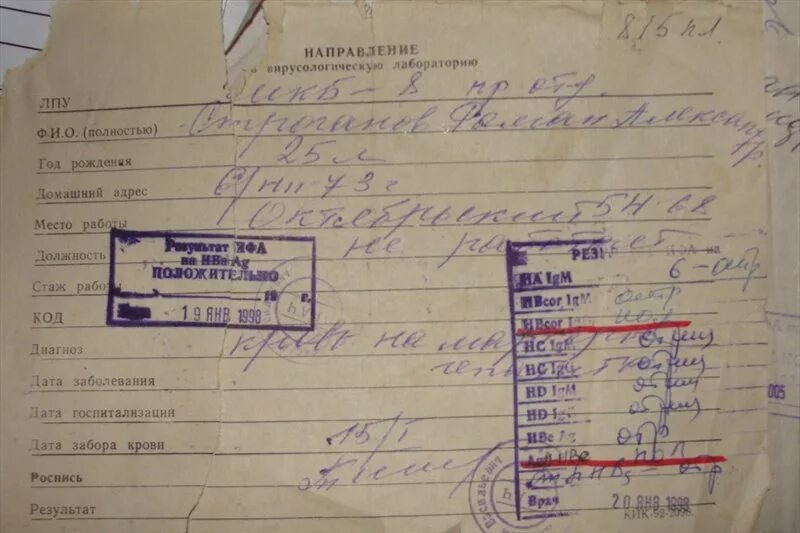 815 пл
НАПРАВЛЕНИЕ
вирусологическую лабораторию
ЛПУ МКБ-8 пр отд.
Ф.И.О. (полностью) Строганов Роман Александр
Год рождения 25 л
Домашний адрес 73 г
Место работы Октябрьский 54-68
Должность не работает
Стаж работы
КОД
Диагноз кровь на
Дата заболевания
Дата госпитализации
Дата забора крови 15/I
Роспись
Результат
Результат ИФА
на HBs Ag
ПОЛОЖИТЕЛЬНО
19 г.
Врач 19 ЯНВ 1998
РЕЗУЛ ИФА на
HA IgM 6-отр
HBcor IgM отр
HBcor пол
HC IgM отриц
HC IgG отриц
HD IgM отриц
HD IgG отриц
HBe Ag отр
Анти HBe пол
анти HBs - отр
Врач 20 ЯНВ 1998
КИК-52-2098.
Васильевич
ВРАЧ
005